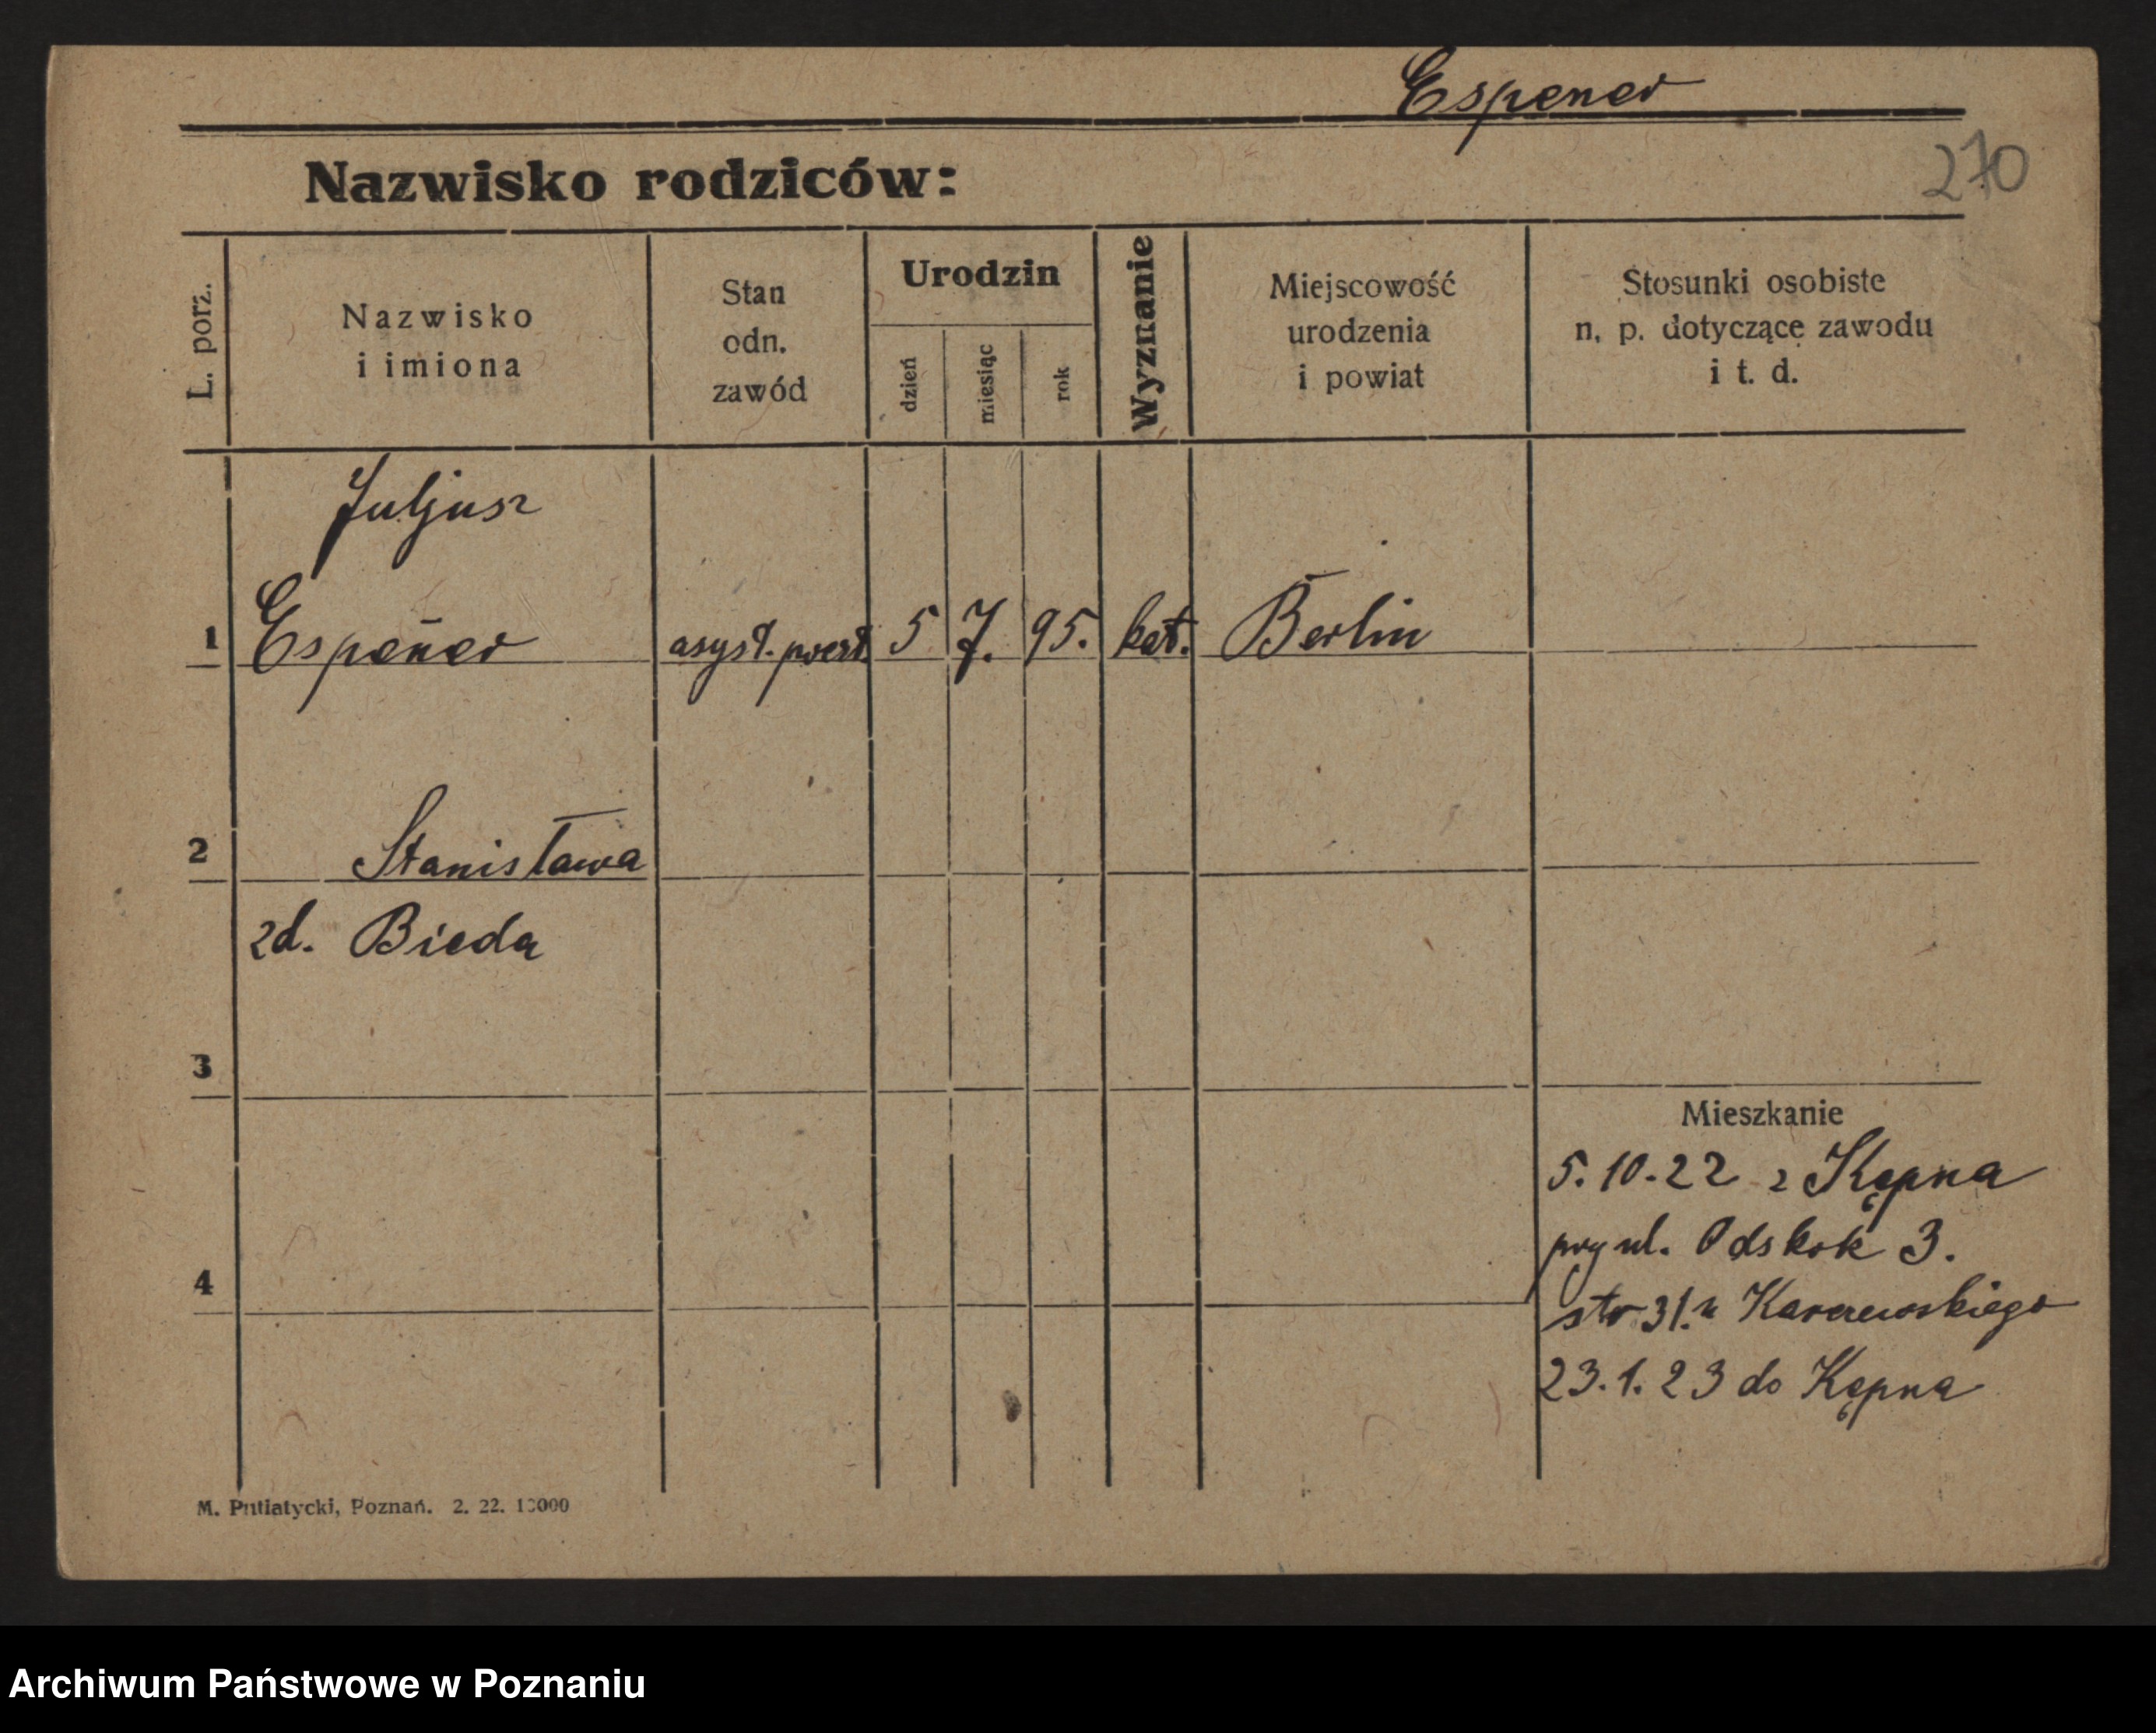 Espener
270
Nazwisko rodziców:
L. porz.
Nazwisko
i imiona
Stan
odn.
zawód
Urodzin
dzień
miesiąc
rok
Wyznanie
Miejscowość
urodzenia
i powiat
Stosunki osobiste
n, p. dotyczące zawodu
i t. d.
Juljusz
1 Espener asyst. 5 7. 95. kat. Berlin
2 Stanisława
zd. Bieda
3
Mieszkanie
5.10.22 z Kępna
ul. Odskok 3.
4
str 31. u
23.1.23 do Kępna
M. Putiatycki, Poznań. 2. 22. 10000
Archiwum Państwowe w Poznaniu